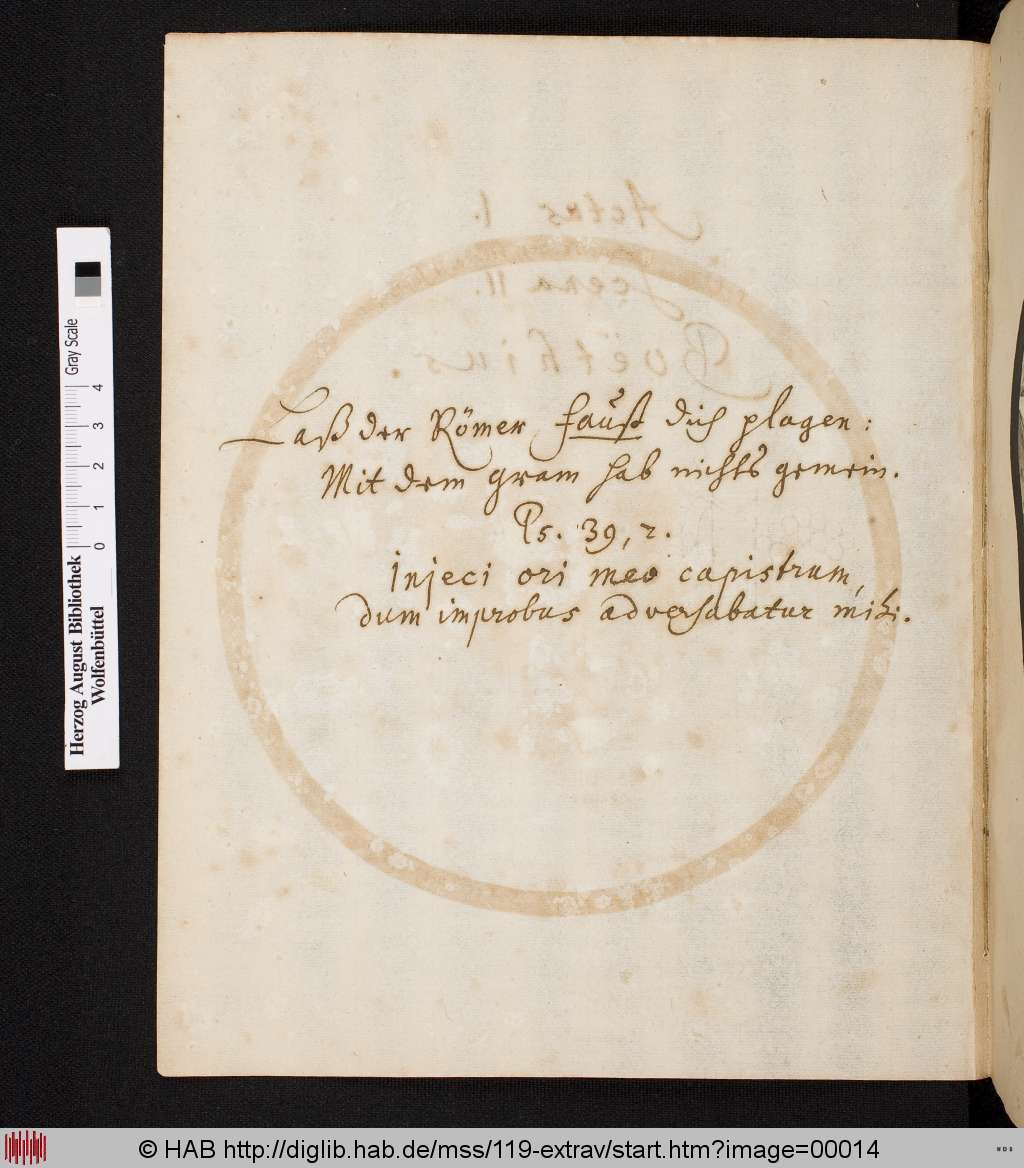 Actus I.
Scena II.
Boëthius.
Laß der Römer faust dich plagen:
Mit dem gram hab nichts gemein.
Ps. 39, 2.
Injeci ori meo capistrum,
dum improbus adversabatur mihi.
Herzog August Bibliothek
Wolfenbüttel
0 1 2 3 4
Gray Scale
© HAB http://diglib.hab.de/mss/119-extrav/start.htm?image=00014